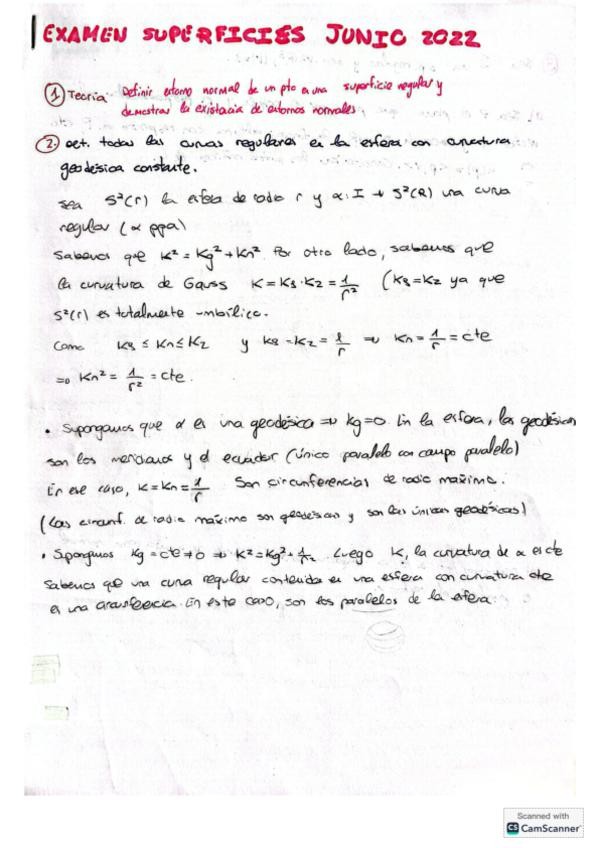 EXAMEN SUPERFICIES JUNIO 2022
1 Teoría: Definir entorno normal de un pto en una superficie regular y
demostrar la existencia de entornos normales.
2. Det. todas las curvas regulares en la esfera con curvatura
geodésica constante.
Sea S²(r) la esfera de radio r y α: I → S²(R) una curva
regular (α ppa)
Sabemos que K² = Kg² + Kn². Por otro lado, sabemos que
la curvatura de Gauss K = K1·K2 = 1/r² (K1 = K2 ya que
S²(r) es totalmente umbílico.
Como K1 ≤ Kn ≤ K2 y K1 = K2 = 1/r ⇒ Kn = 1/r = cte
⇒ Kn² = 1/r² = cte.
• Supongamos que α es una geodésica ⇒ Kg = 0. En la esfera, las geodésicas
son los meridianos y el ecuador (único paralelo con campo paralelo)
En ese caso, K = Kn = 1/r. Son circunferencias de radio máximo.
(Las circunf. de radio máximo son geodésicas y son las únicas geodésicas)
• Spongmos Kg = cte ≠ 0 ⇒ K² = Kg² + 1/r². Luego K, la curvatura de α es cte
Sabemos que una curva regular contenida en una esfera con curvatura cte
es una circunferencia. En este caso, son los paralelos de la esfera.
Scanned with
CS CamScanner